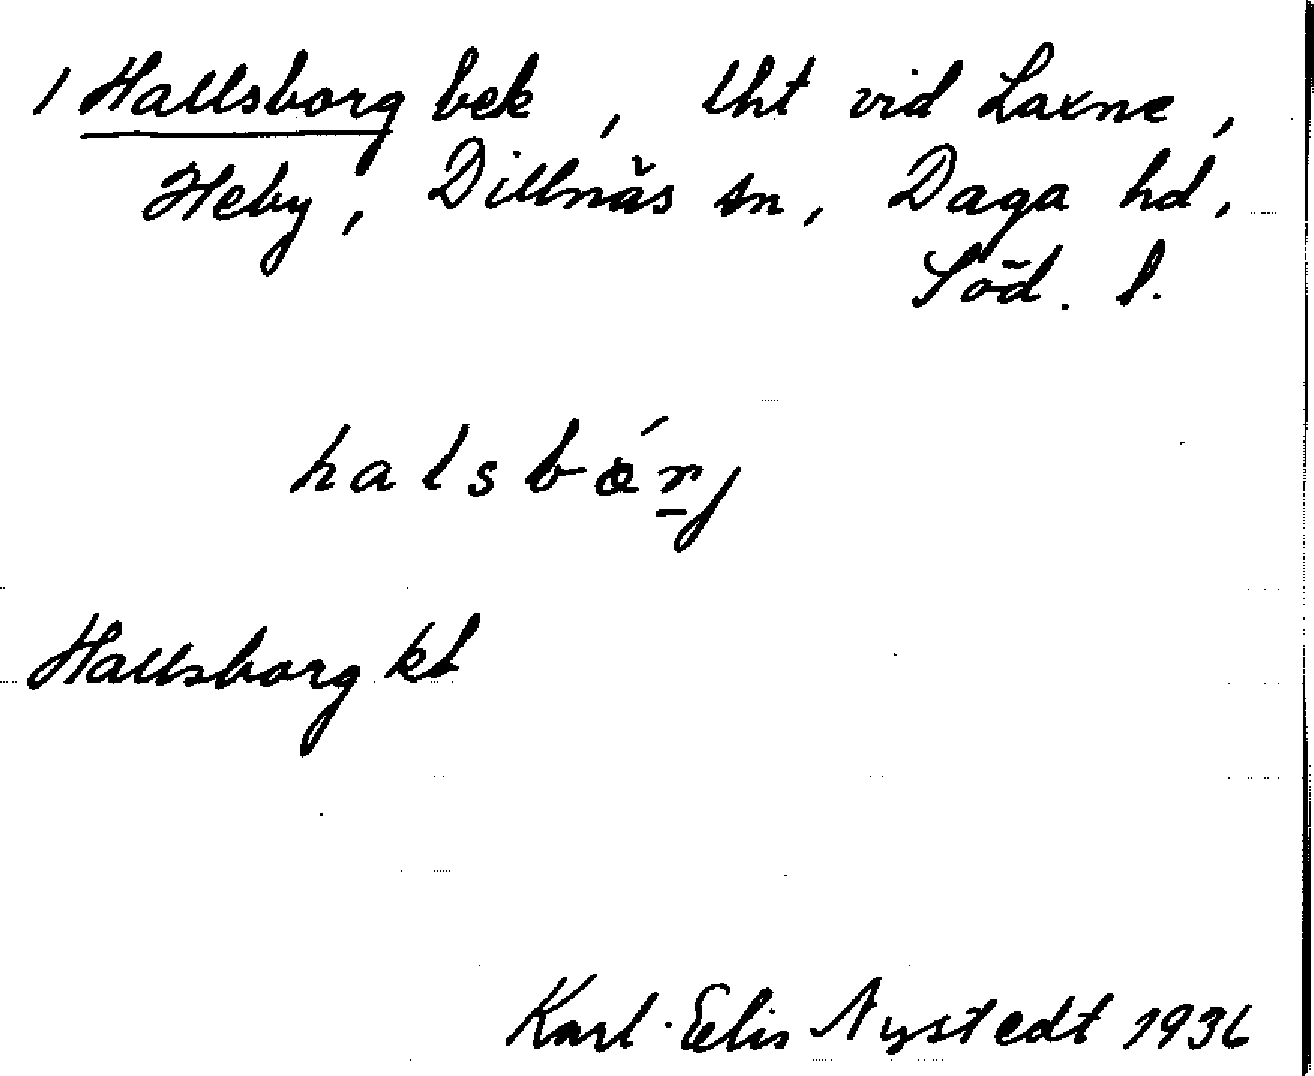 / Hallsborg bek, lht vid Laxne,
Heby, Dillnäs sn, Daga hd,
Söd. l.
halsbórj
Hallsborg kt
Karl-Elis Nystedt 1936